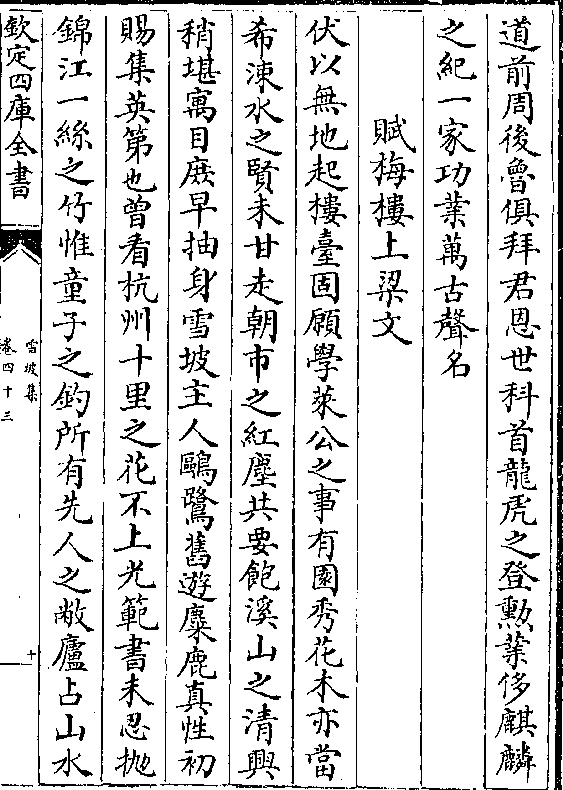 道前周後魯俱拜君恩世科首龍虎之登勲業侈麒麟
之紀一家功業萬古聲名
賦梅樓上梁文
伏以無地起樓臺固願學萊公之事有園秀花木亦當
希涑水之賢未甘走朝市之紅塵共要飽溪山之清興
稍堪寓目庶早抽身雪坡主人鷗鷺舊遊麋鹿真性初
賜集英第也曾看杭州十里之花不上光範書未忍拋
錦江一絲之竹惟童子之釣所有先人之敝廬占山水
欽定四庫全書
雪坡集
卷四十三
十